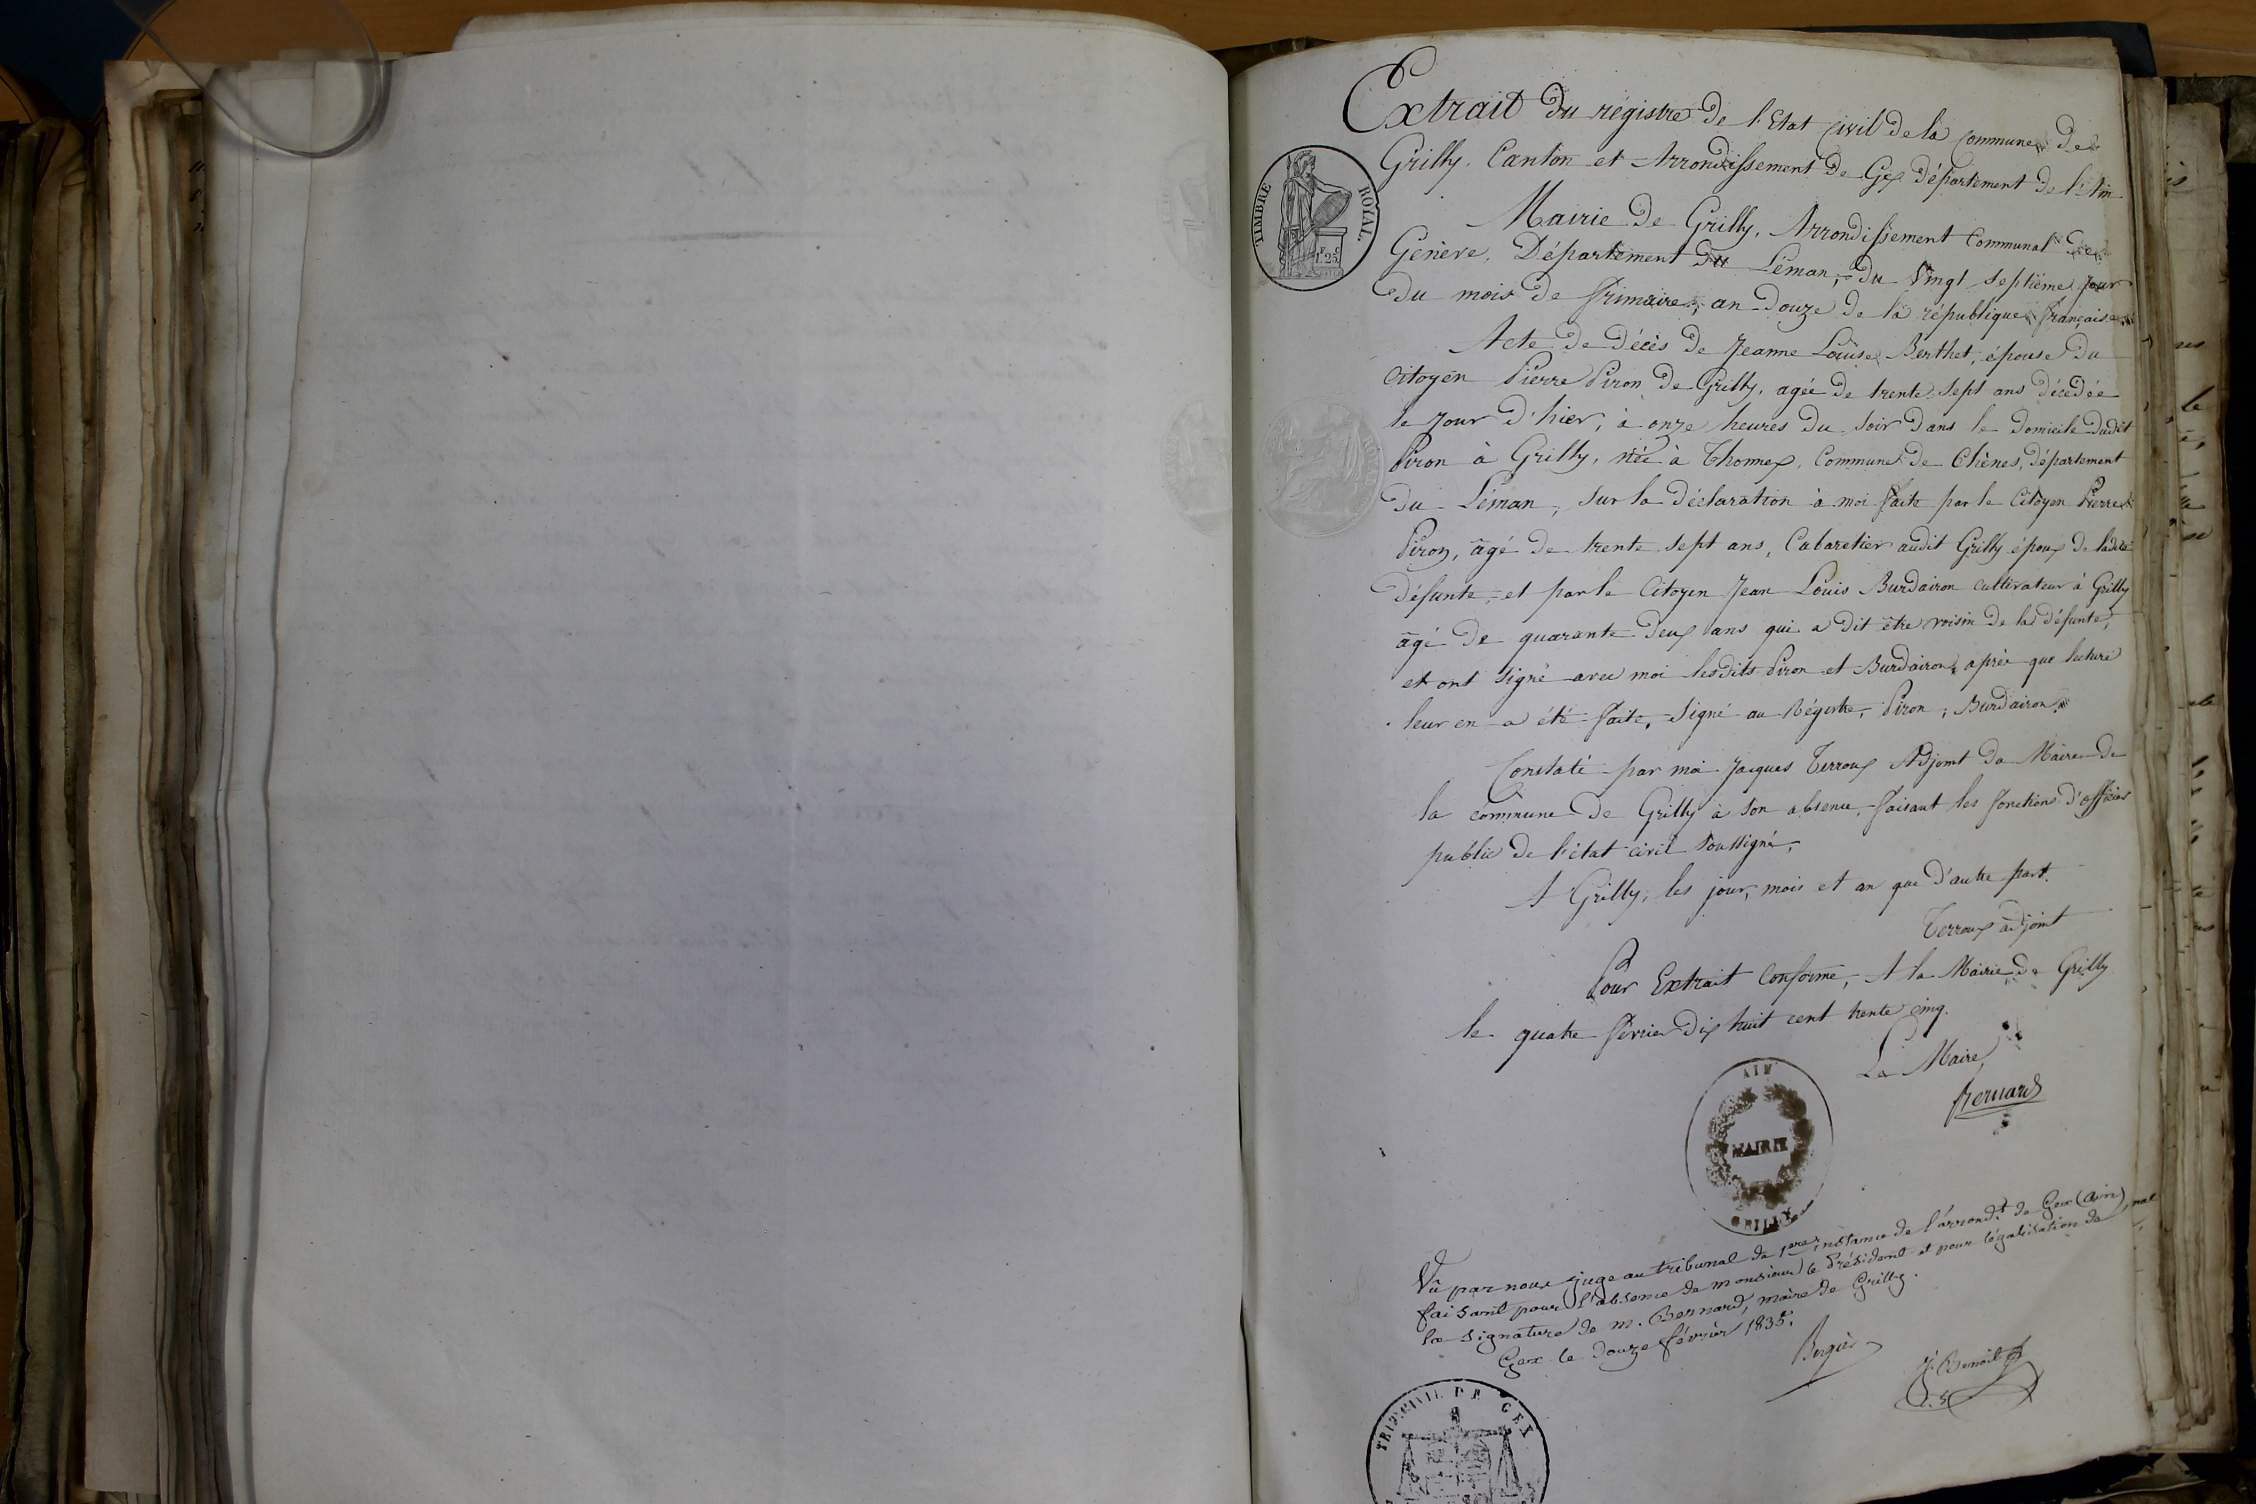 Extrait du régistre de l'Etat Civil de la Commune de
Grilly. Canton et Arrondissement de Gex département de l'Ain
TIMBRE ROYAL.
Mairie de Grilly, Arrondissement Communal de
Genève, Département du Léman, du vingt septième jour
du mois de frimaire, an douze de la république française
Acte de décès de Jeanne Louise Berthet, épouse du
Citoyen Pierre Piron de Grilly, agée de trente sept ans décédée
le jour d'hier, à onze heures du soir dans le domicile dudit
Piron à Grilly, née à Thonnex, Commune de Chênes, département
du Léman, sur la déclaration à moi faite par le Citoyen Pierre
Piron, âgé de trente sept ans, Cabaretier audit Grilly époux de ladite
défunte, et par le Citoyen Jean Louis Burdairon cultivateur à Grilly
âgé de quarante deux ans qui a dit être voisin de la défunte,
et ont signé avec moi lesdits Piron et Burdairon, après que lecture
leur en a été faite, Signé au Régistre, Piron, Burdairon.
Constaté par moi Jacques Terroux Adjoint du Maire de
la commune de Grilly à son absence, faisant les fonctions d'officier
public de l'état civil soussigné,
A Grilly, les jour, mois et an que d'autre part.
Terroux adjoint
Pour Extrait Conforme, A la Mairie de Grilly
le quatre février dix huit cent trente cinq.
Le Maire,
Bernard
AIN
MAIRIE
GRILLY
Vû par nous juge au tribunal de 1ere instance de l'arrondt. de Gex (Ain)
faisant pour l'absence de monsieur le Président et pour légalisation de
la signature de M. Bernard, maire de Grilly.
Gex le douze février 1835.
J. Benoit
TRIB. CIVIL DE GEX